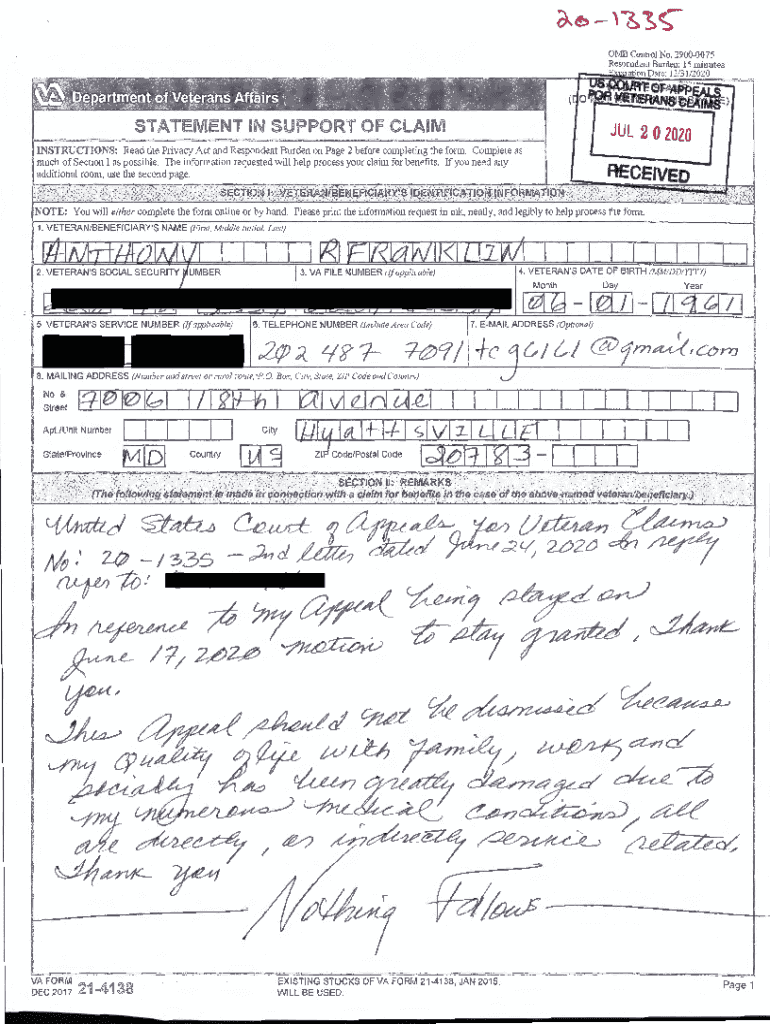 20-1335
OMB Control No. 2900-0075
Respondent Burden: 15 minutes
Expiration Date: 12/31/2020
VA Department of Veterans Affairs
US COURT OF APPEALS
FOR VETERANS CLAIMS
JUL 20 2020
RECEIVED
STATEMENT IN SUPPORT OF CLAIM
INSTRUCTIONS: Read the Privacy Act and Respondent Burden on Page 2 before completing the form. Complete as
much of Section I as possible. The information requested will help process your claim for benefits. If you need any
additional room, use the second page.
SECTION I: VETERAN/BENEFICIARY'S IDENTIFICATION INFORMATION
NOTE: You will either complete the form online or by hand. Please print the information request in ink, neatly, and legibly to help process the form.
1. VETERAN/BENEFICIARY'S NAME (First, Middle Initial, Last)
ANTHONY R FRANKLIN
2. VETERAN'S SOCIAL SECURITY NUMBER 3. VA FILE NUMBER (If applicable) 4. VETERAN'S DATE OF BIRTH (MM/DD/YYYY)
Month Day Year
06-01-1961
5. VETERAN'S SERVICE NUMBER (If applicable) 6. TELEPHONE NUMBER (Include Area Code) 7. E-MAIL ADDRESS (Optional)
202 487 7091 tcg6161@gmail.com
8. MAILING ADDRESS (Number and street or rural route, P.O. Box, City, State, ZIP Code and Country)
No. & Street 7006 18th avenue
Apt./Unit Number City HyattsVILLE
State/Province MD Country US ZIP Code/Postal Code 20783-
SECTION II: REMARKS
(The following statement is made in connection with a claim for benefits in the case of the above-named veteran/beneficiary.)
United States Court of Appeals for Veteran Claims
No: 20-1335 - 2nd letter dated June 24, 2020 In reply
refer to:
In reference to my Appeal being stayed on
June 17, 2020 motion to stay granted, Thank
you.
This Appeal should not be dismissed because
my Quality of life with family, work, and
socially has been greatly damaged due to
my numerous medical conditions, all
are directly, or indirectly service related.
Thank you
Nothing Follows
VA FORM
DEC 2017 21-4138
EXISTING STOCKS OF VA FORM 21-4138, JAN 2015,
WILL BE USED.
Page 1